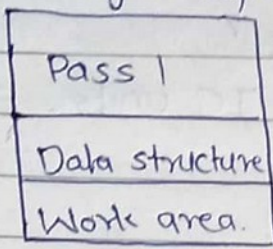 Pass 1
Data structure
Work area.